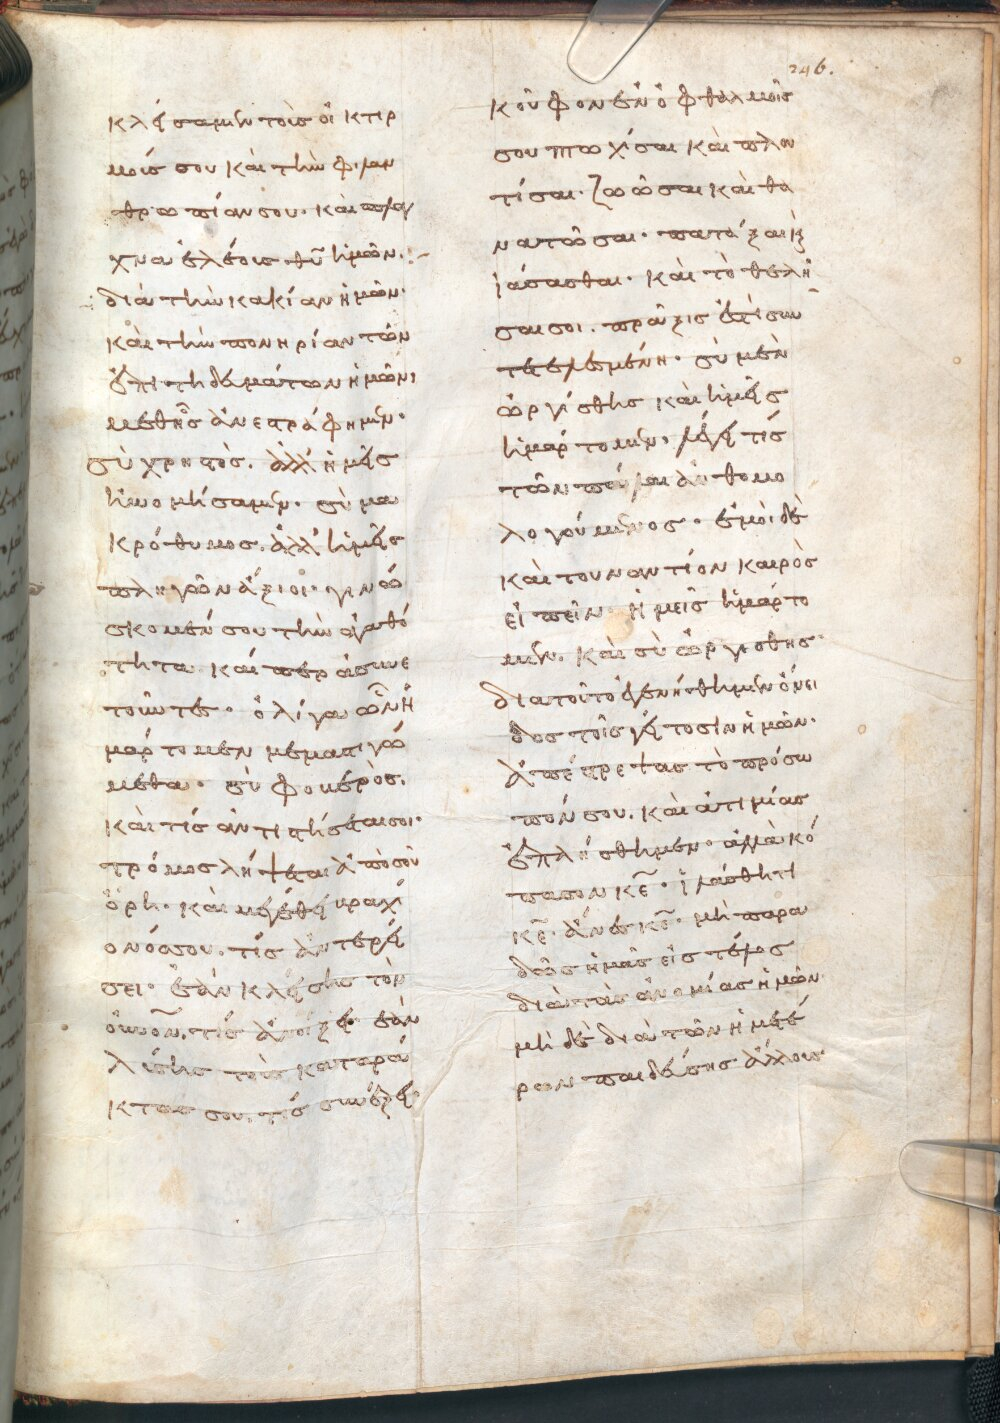 246.
κλείσαμεν τοῖς οἰκτιρ
μοῖς σου καὶ τὴν φιλαν
θρωπίαν σου· καὶ σπλαγ
χνα ἐλέους θῦ ἡμῶν·
διὰ τὴν κακίαν ἡμῶν·
καὶ τὴν πονηρίαν τῶν
ἐπιτηδευμάτων ἡμῶν,
μεθῆς ἀνεστράφημεν·
σὺ χρηστὸς. ἀλλ' ἡμεῖς
ἡνομήσαμεν. σὺ μα
κρόθυμος. ἀλλ' ἡμεῖς
πληγῶν ἄξιοι· γινώ
σκομέν σου τὴν ἀγαθό
τητα καί περ ἀσυνε
τοῦντες· ὀλίγα ὧν ἡ
μάρτομεν μεμαστιγώ
μεθα· σὺ φοβερὸς.
καὶ τίς ἀντιστήσεταί σοι·
τρόμος λήψεται ἀπὸ σοῦ
ὄρη· καὶ μεγέθει βραχί
ονός σου. τίς ἀντερεῖ
σει· ἐὰν κλείσης τὸν
οὐνὸν. τίς ἀνοίξει· ἐὰν
λύσης τοὺς καταρά
κτας σου. τίς συνέξει·
κοῦφον ἐν ὀφθαλμοῖς
σου πτωχίσαι καὶ πλου
τίσαι· ζωῶσαι καὶ θα
νατῶσαι· πατάξαι κ
ἰάσασθαι· καὶ τὸ θελῆ
σαί σοι. πράξις ἐστὶ συν
τετελεσμένη· σὺ μὲν
ὠργίσθης καὶ ἡμεῖς
ἡμάρτομεν. λέγει τίς
τῶν πάλαι ἀνθομο
λογούμενος· ἐμοὶ δὲ
καὶ τουναντίον καιρὸς
εἰπεῖν· ἡμεῖς ἡμάρτο
μεν. καὶ σὺ ὠργίσθης·
διατοῦτο ἐγενήθημεν ὄνει
δος τοῖς γείτοσιν ἡμῶν·
ἀπέστρεψας τὸ πρόσω
πόν σου. καὶ ἀτιμίας
ἐπλήσθημεν· ἀλλὰ κό
πασον κε· ἱλάσθητι
κε. ἄνες κε· μὴ παρα
δῶς ἡμᾶς εἰς τέλος
διὰ τὰς ἀνομίας ἡμῶν·
μὴ δὲ διὰ τῶν ἡμετέ
ρων παιδεύσης ἄλλους